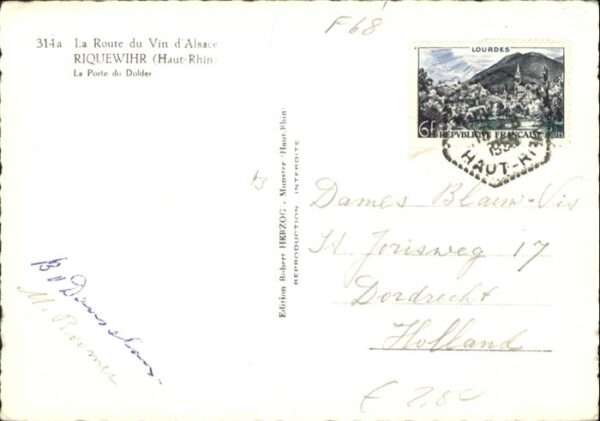 314a La Route du Vin d'Alsace
RIQUEWIHR (Haut-Rhin)
La Porte du Dolder
F 68
LOURDES
6f RÉPUBLIQUE FRANÇAISE
HAUT-RHIN
Edition Robert HERZOG, Munster (Haut-Rhin)
REPRODUCTION INTERDITE
Dames Blauw-Vis
St Jorisweg 17
Dordrecht
Holland
M.